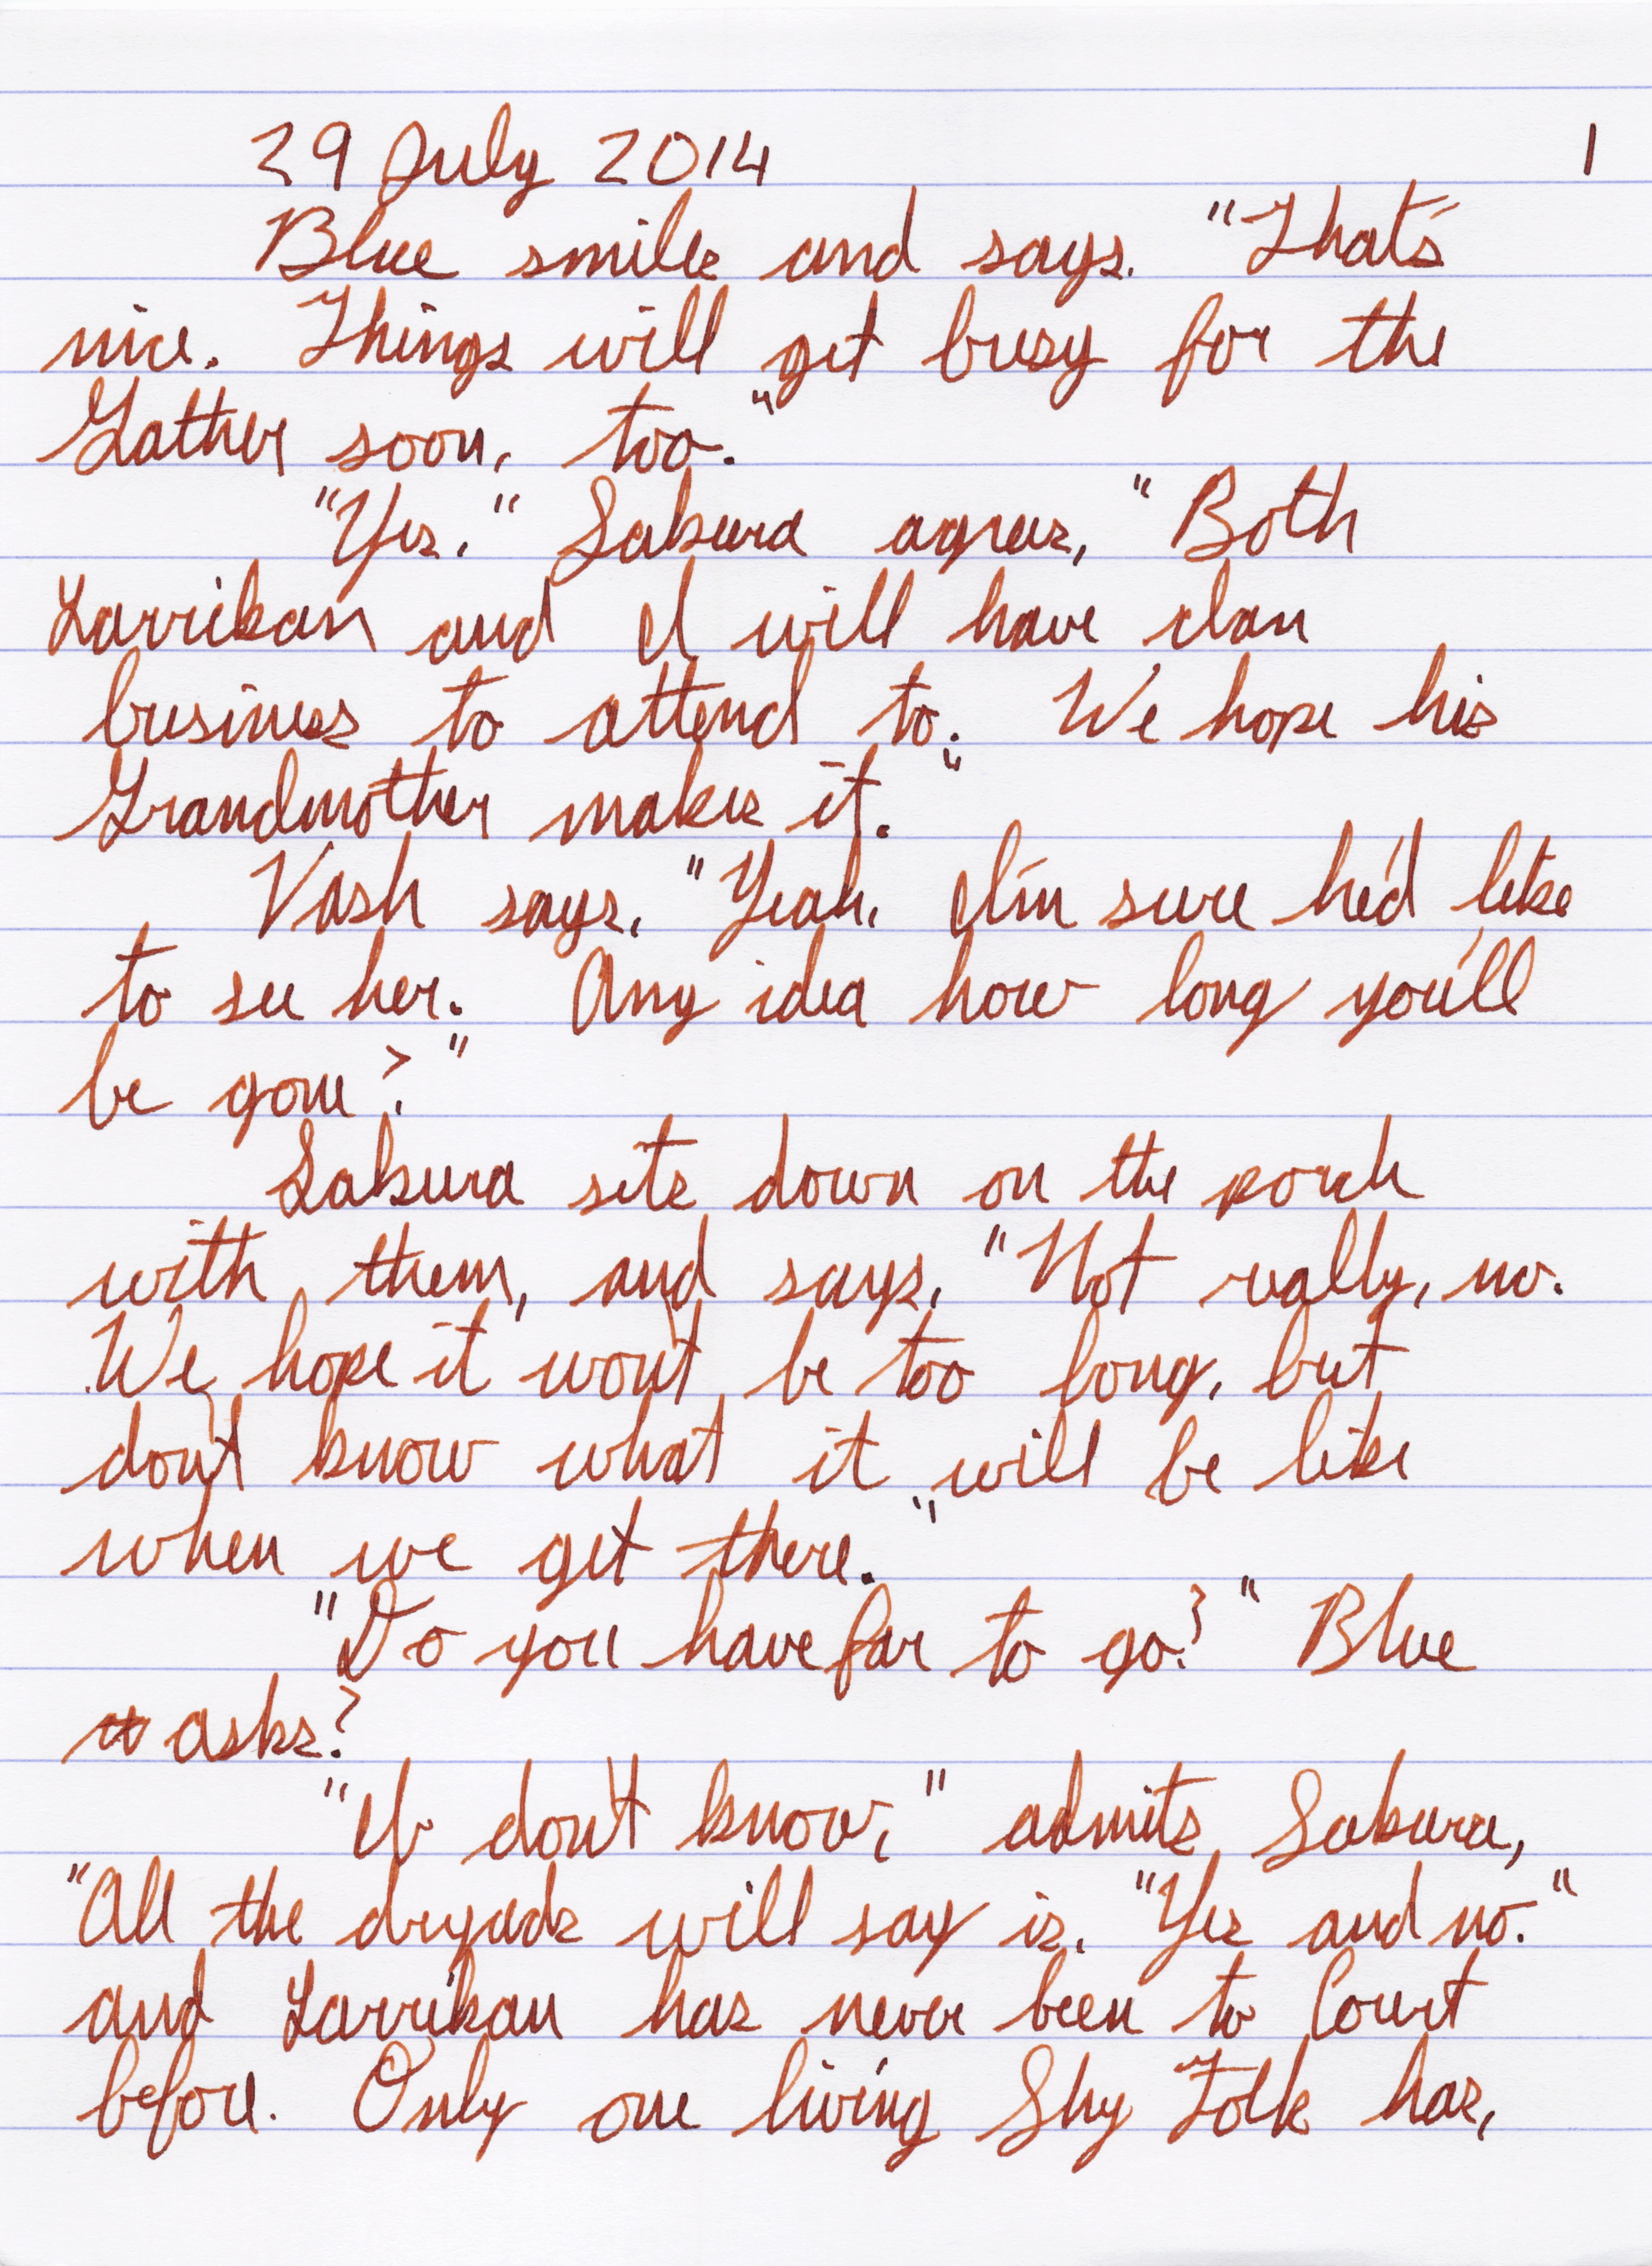 29 July 2014 1
Blue smiles and says. "That's
nice. Things will get busy for the
Gather soon, too."
"Yes," Sakura agrees, "Both
Larrikan and I will have clan
business to attend to. We hope his
Grandmother makes it."
Vash says, "Yeah. I'm sure he'd like
to see her. Any idea how long you'll
be gone?"
Sakura sits down on the porch
with them, and says, "Not really, no.
We hope it won't be too long, but
don't know what it will be like
when we get there."
"Do you have far to go?" Blue
asks?
"I don't know," admits Sakura,
"All the dryads will say is, "Yes and no."
and Larrikan has never been to Court
before. Only one living Shy Folk has,